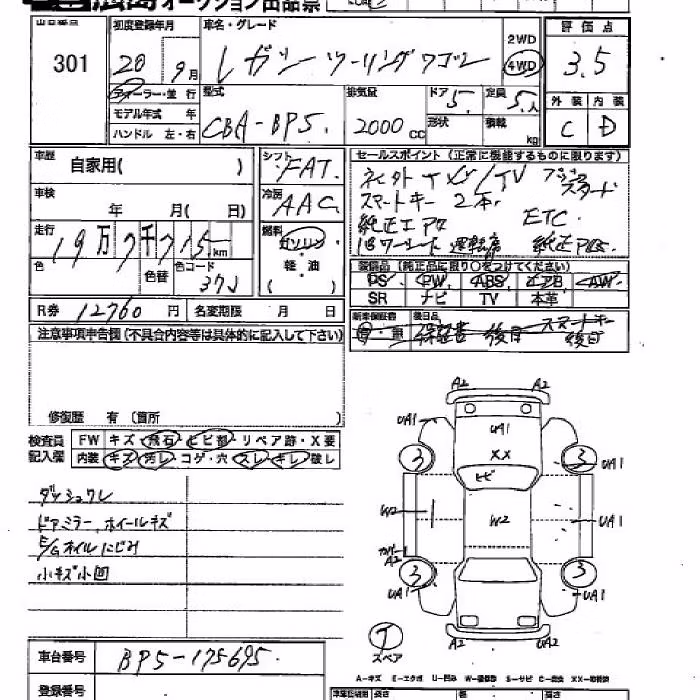 広島オークション出品票
出品番号 301
初度登録年月 20 9月
車名・グレード レガシー ツーリングワゴン
2WD 4WD
評価点 3.5
外装 内装
C D
ディーラー・並行
モデル年式 年
ハンドル 左・右
型式 CBA-BP5.
排気量 2000cc
ドア 5.
形状
定員 5.人
積載 kg
車歴 自家用( )
シフト FAT.
車検 年 月( 日)
冷房 AAC
走行 19万7千715km
燃料 ガソリン
軽・油
( )
色 色替 色コード 37J
R券 12760円 名変期限 月 日
セールスポイント(正常に機能するものに限ります)
スマートキー 2本.
純正エアロ ETC
運転席
装備品(純正品に限り○をつけてください)
PS PW ABS エアB AW
SR ナビ TV 本革
新車保証書 有・無
後日品 保証書 後日 スマートキー 後日
注意事項申告欄(不具合内容等は具体的に記入して下さい)
修復歴 有(箇所
検査員記入欄
FW キズ・飛石・ヒビ割・リペア跡・X要
内装 キズ・汚レ・コゲ・穴・スレ・キレ・破レ
ダッシュワレ
ドアミラー、ホイールキズ
E/Gオイルにじみ
小キズ小凹
A2 A2
UA1 UA1
XX
ヒビ
3 3 UA1
W2 W2 UA1
カバー A2
3 3
UA1 UA1
T スペア
A2 UA2
車台番号 BP5-175695.
登録番号
A-キズ E-エクボ U-凹み W-補修跡 S-サビ C-腐食 XX-交換済